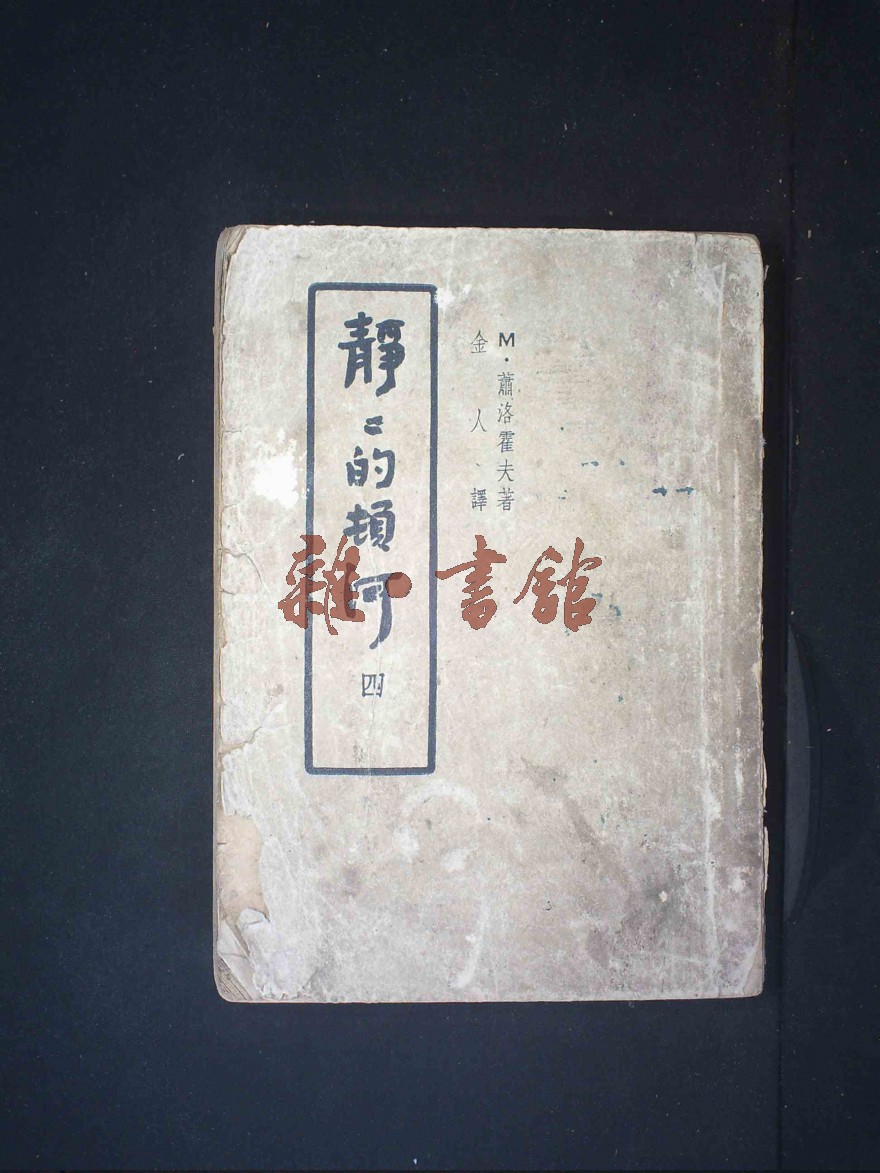 M·蕭洛霍夫著
金人譯
靜〻的頓河
四
雜·書館